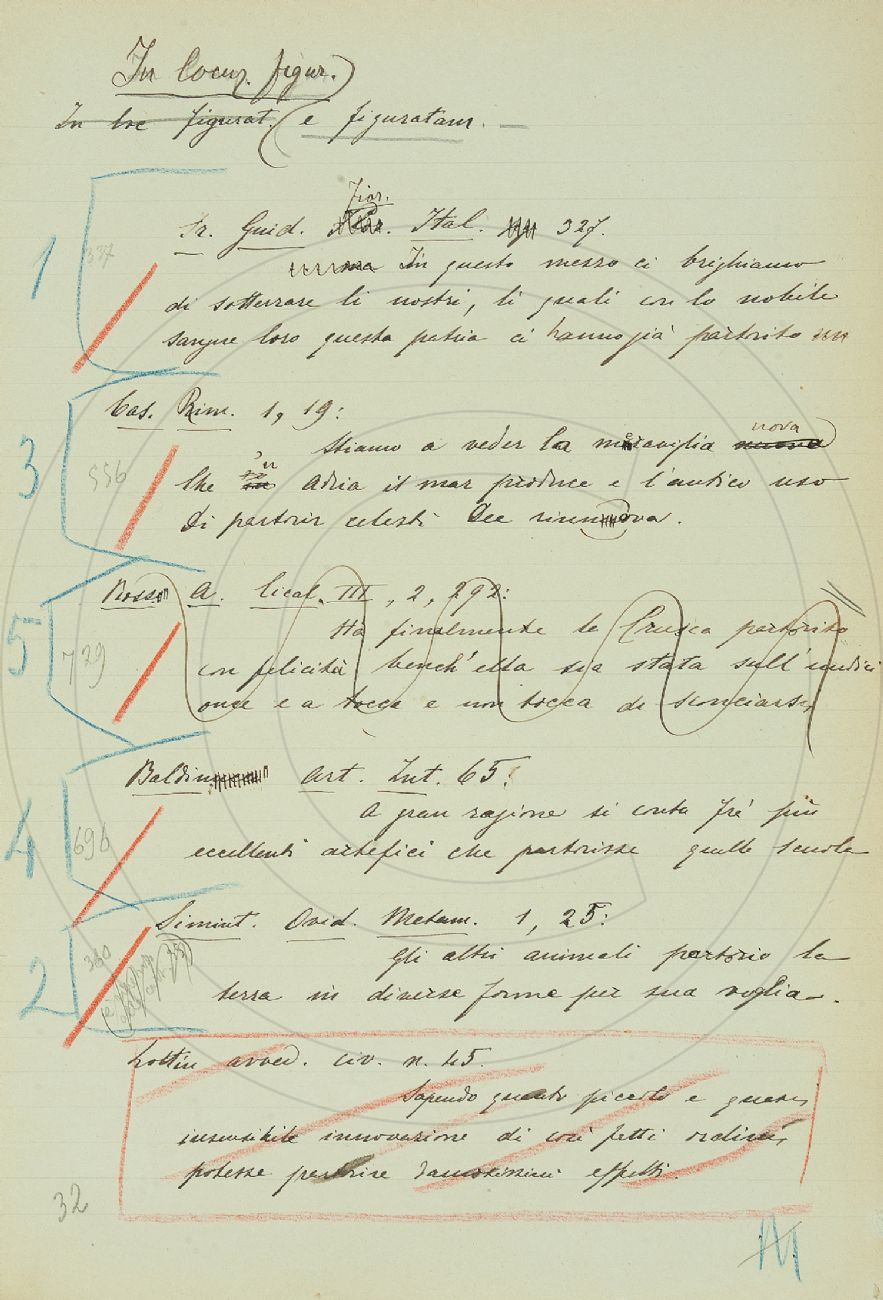 In locuz. figur.)
In loc figurat. (e figuratam.
1
337
Fior.
Fr. Guid. Ital. 327.
In questo mezzo ci brighiamo
di sotterrare li nostri, li quali con lo nobile
sangue loro questa patria ci hanno già partorito
3
Cas. Rim. 1, 19:
nova
Stiamo a veder la maraviglia nuova
556
Che 'n Adria il mar produce e l'antico uso
Di partorir celesti Dee rinnova.
5
Rosso A. Lical. III, 2, 292:
Ha finalmente la Crusca partorito
729
con felicità bench' ella sia stata sull' undici
once e a tocca e non tocca di sconciarsi.
4
Baldin. Art. Int. 65:
A gran ragione si conta frà più
696
eccellenti artefici che partorisse quella scuola
2
Simint. Ovid. Metam. 1, 25:
330
Gli altri animali partorio la
terra in diverse forme per sua voglia.
Lottin avved. civ. n. 45.
Sapendo quanto piccola e quasi
insensibile innovazione di così fatti ordini,
potesse partorire dannosissimi effetti.
32